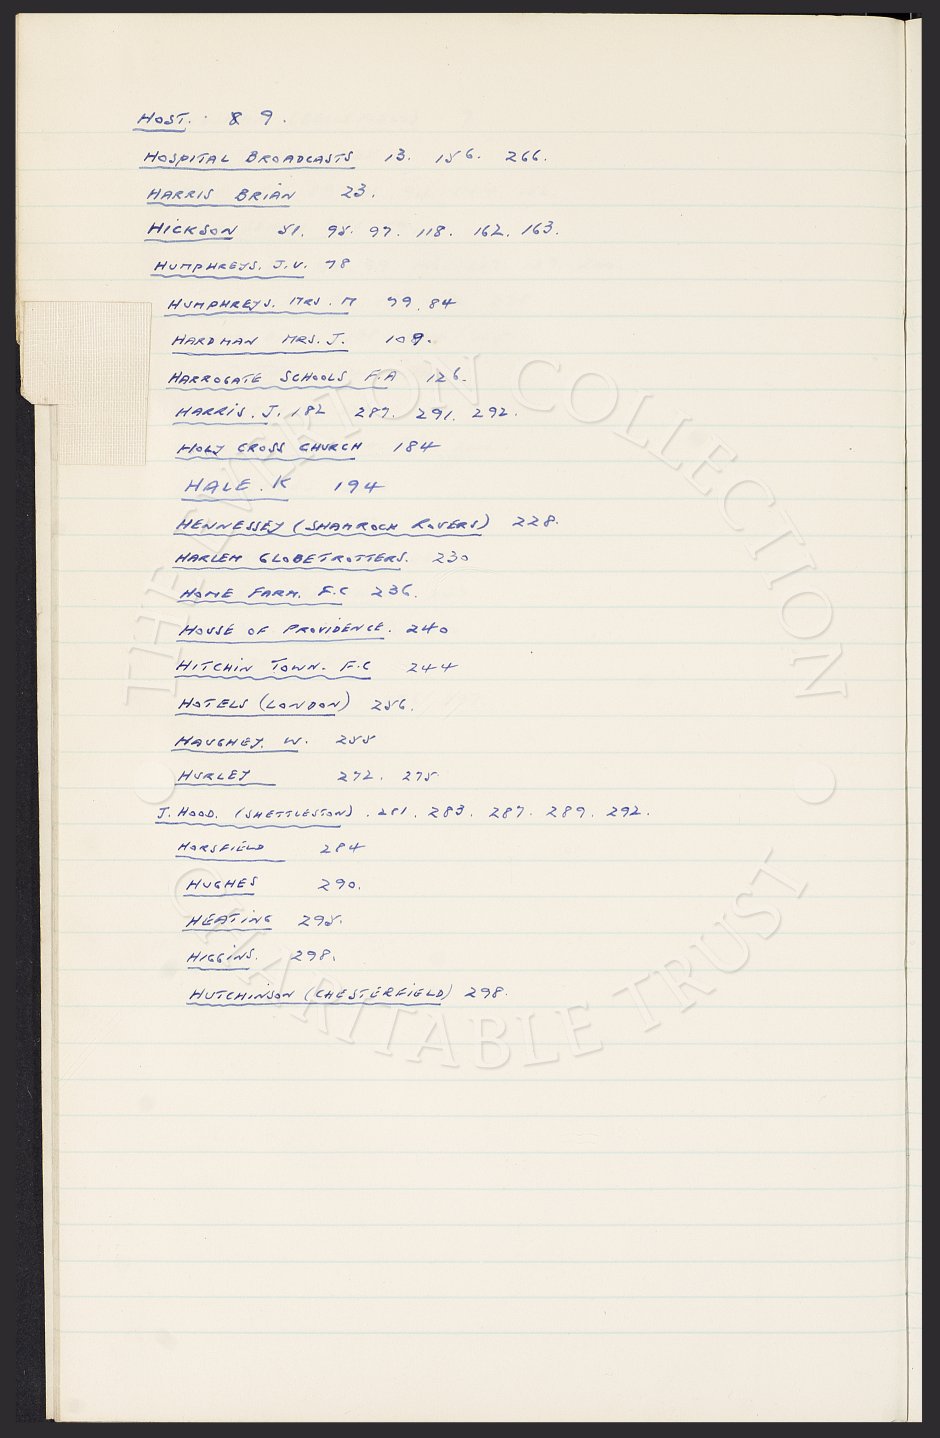 HOST. 8 9.
HOSPITAL BROADCASTS 13. 156. 266.
HARRIS BRIAN 23.
HICKSON 51. 95. 97. 118. 162. 163.
HUMPHREYS. J.V. 78
HUMPHREYS. MRS. M 79. 84
HARDMAN MRS. J. 109.
HARROGATE SCHOOLS F.A 126.
HARRIS. J. 182 287. 291. 292.
HOLY CROSS CHURCH 184
HALE. K 194
HENNESSEY (SHAMROCK ROVERS) 228.
HARLEM GLOBETROTTERS. 230
HOME FARM. F.C 236.
HOUSE OF PROVIDENCE. 240
HITCHIN TOWN. F.C 244
HOTELS (LONDON) 256.
HAUGHEY. W. 255
HURLEY 272. 275.
J. HOOD. (SHETTLESTON). 281. 283. 287. 289. 292.
HORSFIELD 284
HUGHES 290.
HEATING 295.
HIGGINS. 298.
HUTCHINSON (CHESTERFIELD) 298.
THE EVERTON COLLECTION
CHARITABLE TRUST